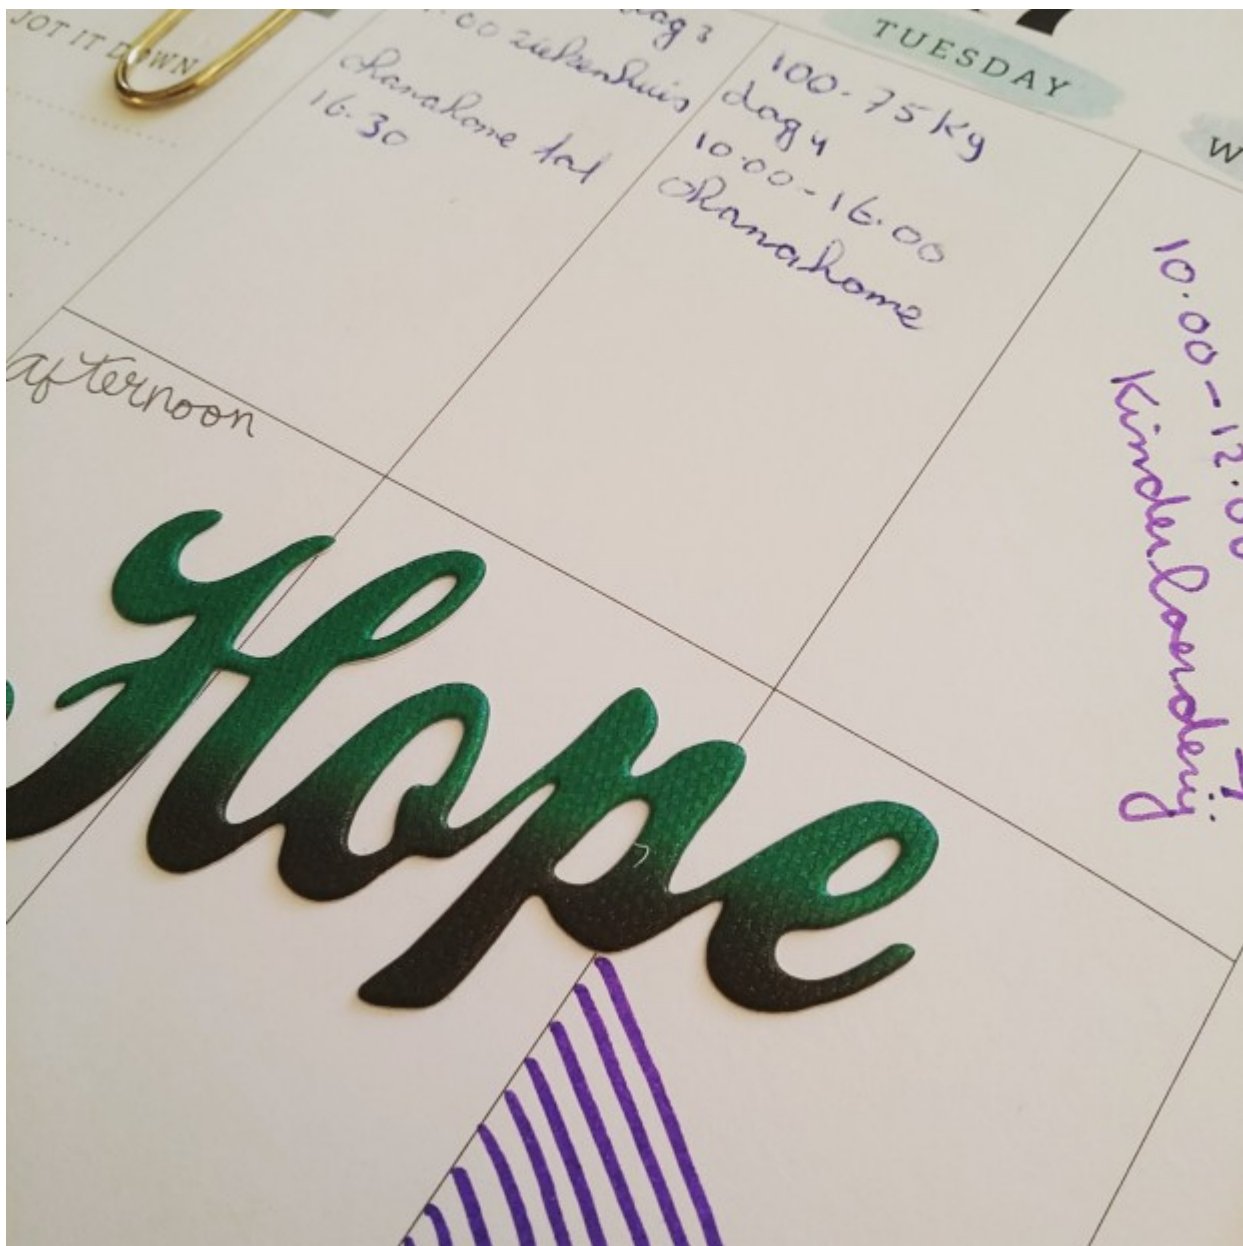 JOT IT DOWN
dag 3
.00 ziekenhuis
ohanahome tot
16.30
TUESDAY
100.75 kg
dag 4
10.00 - 16.00
ohanahome
W
10.00 - 12.00
Kinderboerderij
afternoon
Hope